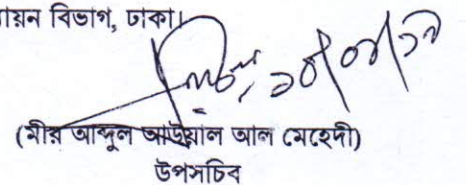 য়ন বিভাগ, ঢাকা।
(মীর আব্দুল আউয়াল আল মেহেদী)
উপসচিব